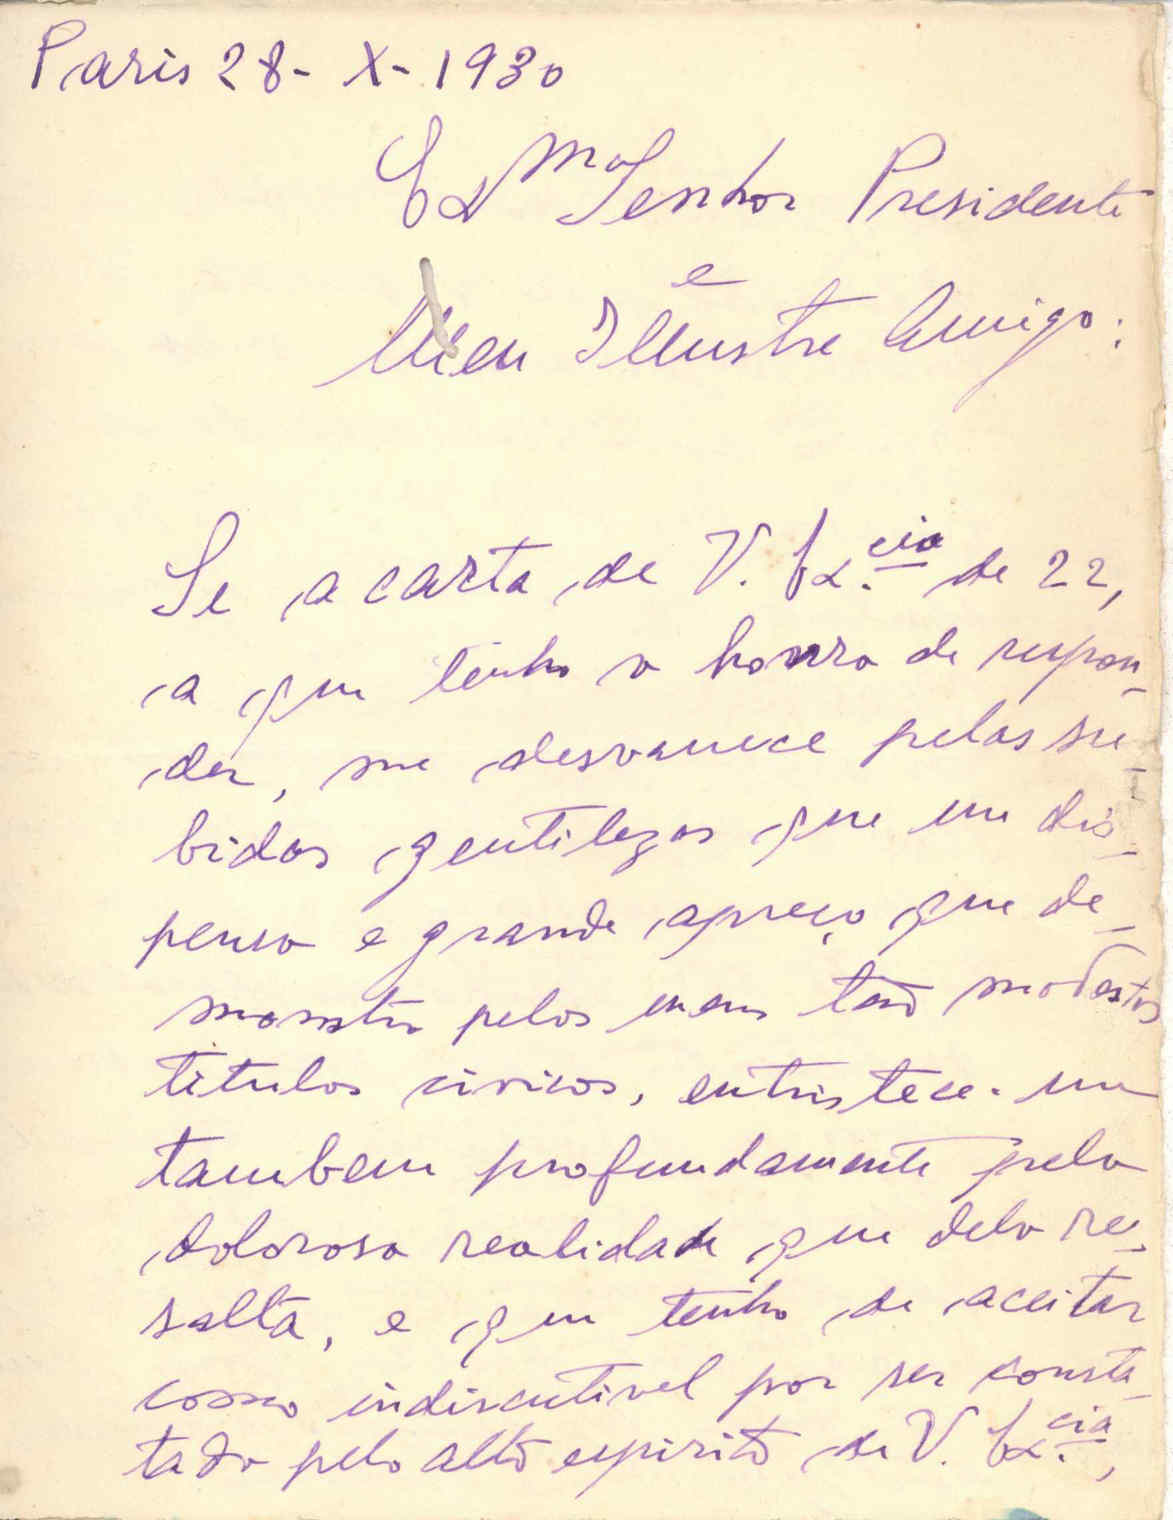 Paris 28- X- 1930
Exmo Senhor Presidente
e
Meu Illustre Amigo:
Se a carta de V. Ex.cia de 22,
a que tenho a honra de respon-
der, me desvanece pelas su-
bidas gentilezas que me dis-
pensa e grande apreço que de-
monstra pelos meus tão modestos
titulos civicos, entristece-me
tambem profundamente pela
dolorosa realidade que dela re-
salta, e que tenho de aceitar
como indiscutivel por ser consta-
tada pelo alto espirito de V. Ex.cia,